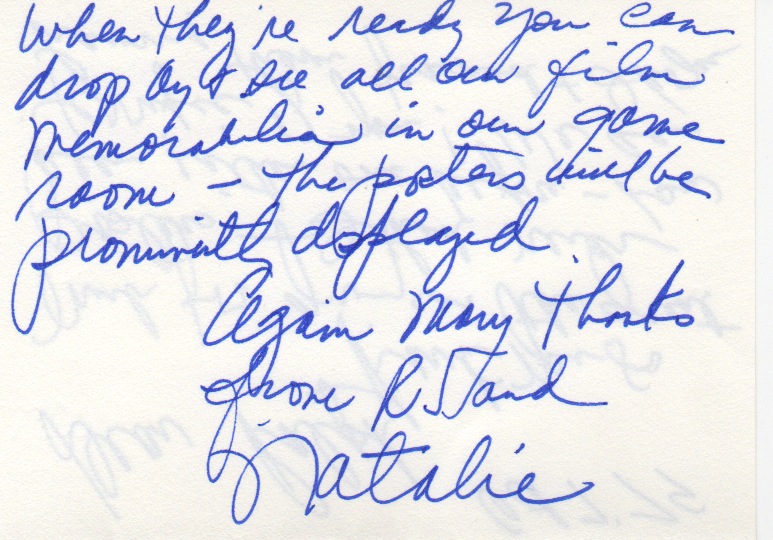 When they're ready you can
drop by & see all our film
memorabilia in our game
room - the posters will be
prominently displayed
Again Many Thanks
from R.J. and
Natalie